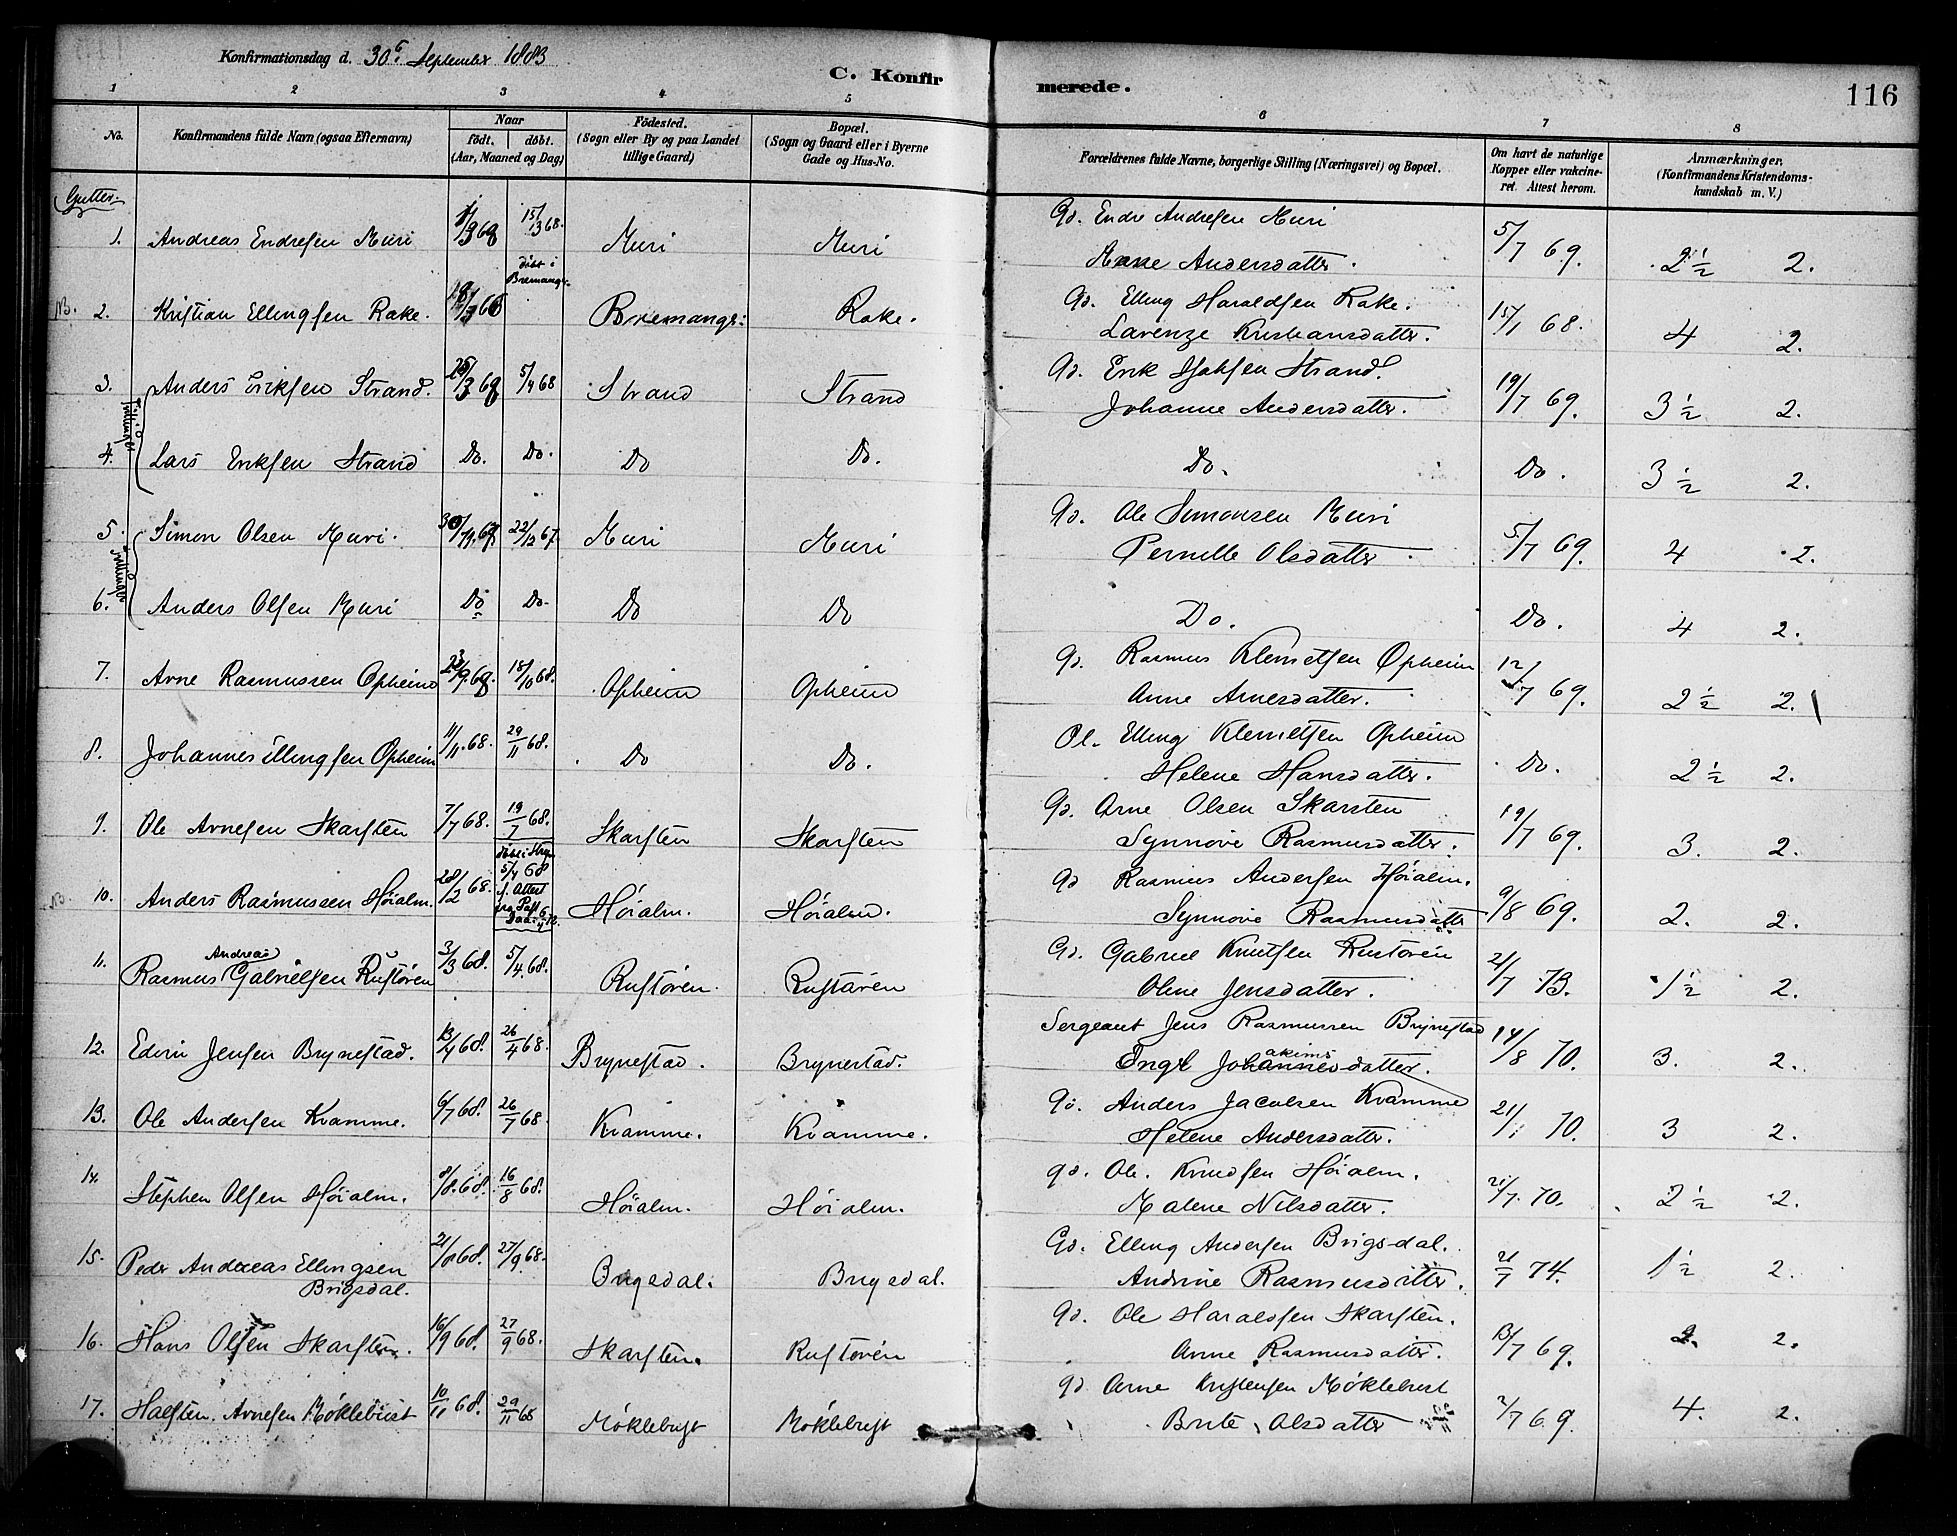 Konfirmationsdag d. 30te September 1883
C. Konfirmerede.
116
1 2 3 4 5 6 7 8
No.
Konfirmandens fulde Navn (ogsaa Efternavn)
Naar
født. døbt.
(Aar, Maaned og Dag)
Fødested.
(Sogn eller By og paa Landet
tillige Gaard)
Bopæl.
(Sogn og Gaard eller i Byerne
Gade og Hus-No.
Forældrenes fulde Navne, borgerlige Stilling (Næringsvei) og Bopæl.
Om havt de naturlige
Kopper eller vakcine-
ret. Attest herom.
Anmærkninger,
(Konfirmandens Kristendoms-
kundskab m. V.)
Gutter
1. Andreas Endresen Muri 15/3 68. Muri Muri Gd. Endre Andresen Muri 5/7 69. 2½ 2.
Andersdatter.
NB. 2. Kristian Ellingsen Rake. døbt i Bremanger Bremanger Rake. Gd. Elling Haraldsen Rake. 15/1 68. 4 2.
Larenze Kristiansdatter.
3. Anders Eriksen Strand. 5/4 68 Strand Strand Gd. Erik Strand. 19/7 69. 3½ 2.
Johanne Andersdatter.
Tvillinger
4. Lars Eriksen Strand Do. Do. Do Do. Do. Do. 3½ 2.
5. Simon Olsen Muri. 30/11 67. 22/12 67. Muri Muri Gd. Ole Simonsen Muri 5/7 69. 4 2.
Pernille Olsdatter
Tvillinger
6. Anders Olsen Muri Do Do. Do Do Do. Do. 4 2.
7. Arne Rasmussen Opheim 23/9 68. 18/10 68. Opheim Opheim Gd. Rasmus Klemetsen Opheim 12/7 69. 2½ 2.
Anne Arnesdatter.
8. Johannes Ellingsen Opheim 11/11. 68. 29/11 68. Do Do. Pl. Elling Klemetsen Opheim Do. 2½ 2.
Helene Hansdatter.
9. Ole Arnesen Skarsten 7/7 68. 19/7 68. Skarsten Skarsten Gd. Arne Olsen Skarsten 19/7 69. 3. 2.
Synnøve Rasmusdatter.
NB. 10. Anders Rasmussen Høialm. 28/2 68. døbt i Stryn 5/4 68 Høialm. Høialm. Gd Rasmus Andersen Høialm. 9/8 69. 2. 2.
Synnøve Rasmusdatter
11. Rasmus Andreas Gabrielsen Rustøren 3/3 68. 5/4. 68. Rustøren. Rustøren Gd. Gabriel Knutsen Rustøren 21/7 73. 1½ 2.
Oline Jensdatter.
12. Edvin Jensen Brynestad. 13/4 68. 26/4 68. Brynestad. Brynestad. Sergeant Jens Rasmussen Brynestad 14/8 70. 3. 2.
akims
Johannesdatter.
13. Ole Andersen Kvamme. 6/7 68. 26/7 68. Kvamme. Kvamme. Gd. Anders Jacobsen Kvamme 70. 3 2.
Helene Andersdatter.
14. Stephen Olsen Høialm. 8/8. 68. 16/8 68. Høialm. Høialm. Gd. Ole. Knudsen Høialm. 21/7. 70. 2½ 2.
Malene Nilsdatter.
15. Peder Andreas Ellingsen 21/8 68. 27/9 68. Brigsdal. Brigsdal. Gd. Elling Andersen Brigsdal. 21/7 74. 1½ 2.
Brigsdal. Andrine Rasmusdatter.
16. Hans Olsen Skarsten. 16/9 68. 27/9 68. Skarsten. Rustøren Gd. Ole Haraldsen Skarsten. 13/7 69. 2. 2.
Anne Rasmusdatter.
17. Halsten. Arnesen Møklebust 10/11 68. 29/11 68 Møklebust Møklebust Gd Arne Møklebust 2/7 69. 4. 2.
Brite Olsdatter